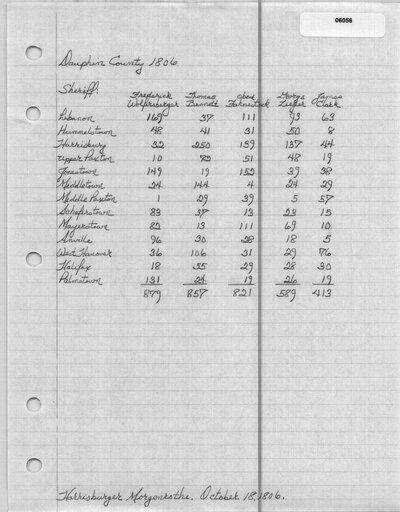 06056
Dauphin County 1806
Sheriff:
Frederick Thomas Obed George James
Wolfersberger Bennett Fahnestock Ziegler Clark
Lebanon 169 37 111 93 63
Hummelstown 48 41 31 50 8
Harrisburg 32 250 159 137 44
Upper Paxton 10 72 51 48 19
Jonestown 149 19 152 39 38
Middletown 24 144 4 24 29
Middle Paxton 1 29 39 5 57
Schaferstown 83 37 13 23 15
Mayerstown 82 13 111 69 10
Anville 96 30 28 18 5
West Hanover 36 106 31 29 76
Halifax 18 55 29 28 30
Palmstown 131 24 19 26 19
879 857 821 589 413
Harrisburger Morgenrothe. October 18, 1806.